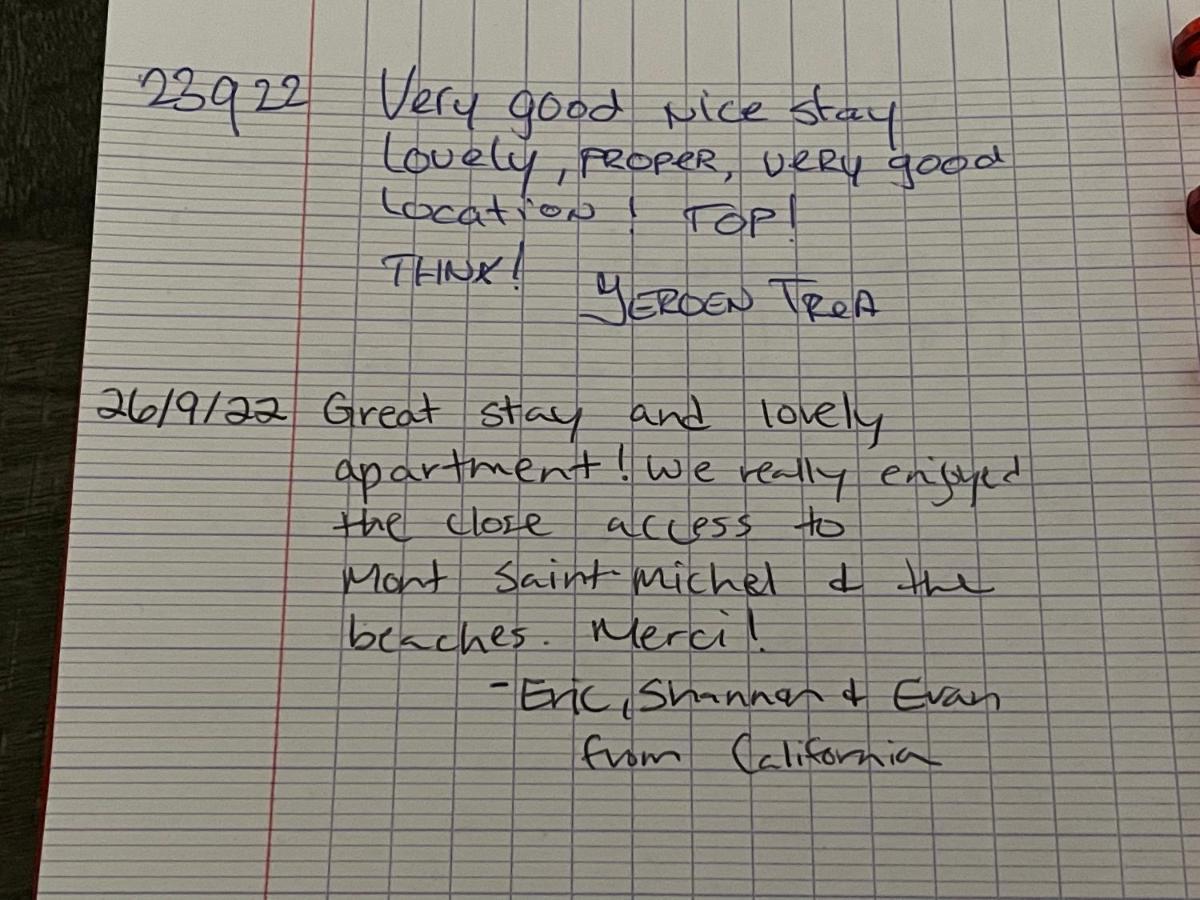 23922 Very good nice stay
Lovely, PROPER, very good
Location! TOP!
THNX!
YEROEN TREA
26/9/22 Great stay and lovely
apartment! We really enjoyed
the close access to
Mont Saint-Michel & the
beaches. Merci!
- Eric, Shannon & Evan
from California